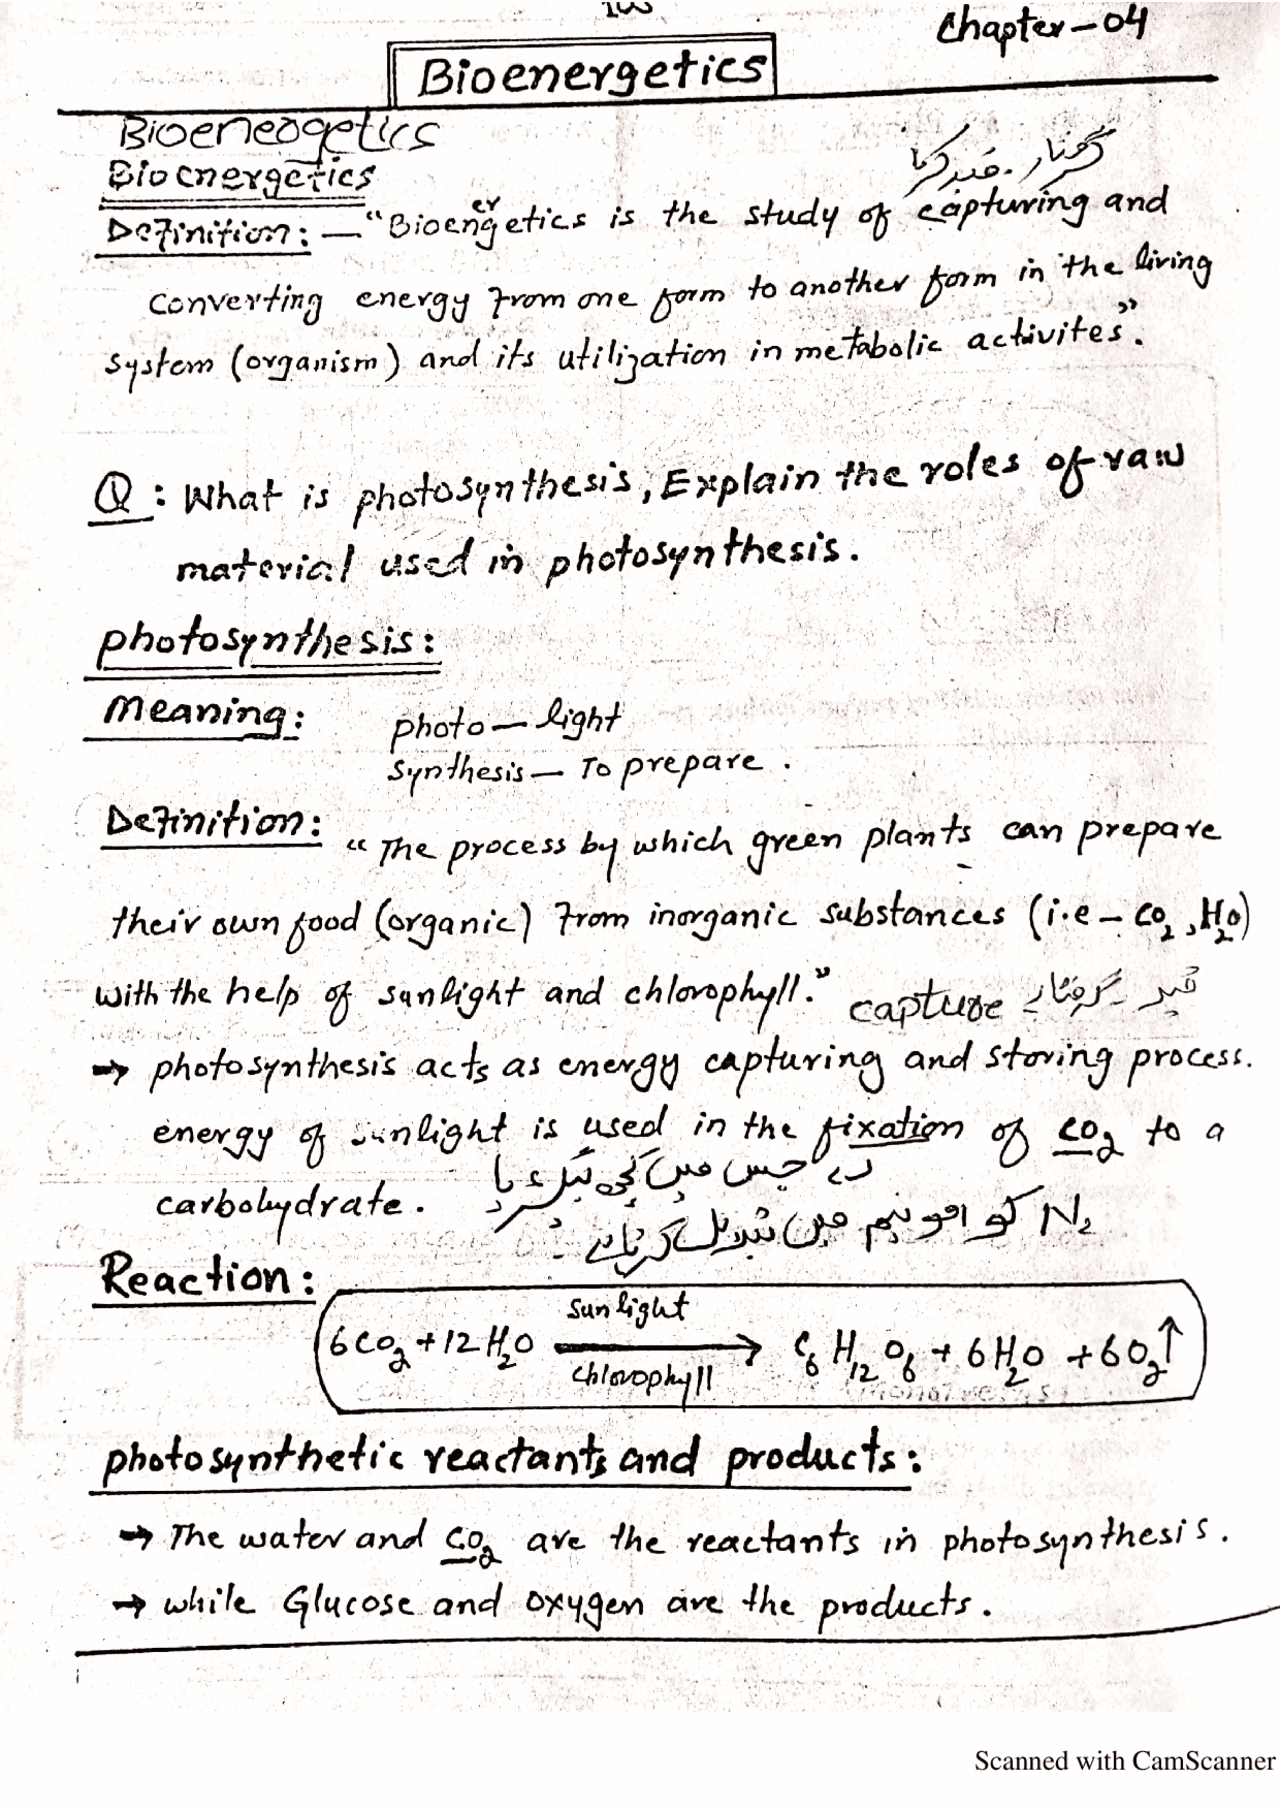 Chapter-04
Bioenergetics
Bioeneogetics
Bioenergetics
گرفتار - قید کرنا
Definition: — "Bioengetics is the study of capturing and
er
converting energy from one form to another form in the living
system (organism) and its utilization in metabolic activites".
Q: What is photosynthesis, Explain the roles of raw
material used in photosynthesis.
photosynthesis:
Meaning: photo — light
Synthesis — To prepare.
Definition: "The process by which green plants can prepare
their own food (organic) from inorganic substances (i.e – CO₂, H₂O)
with the help of sunlight and chlorophyll." capture قید - گرفتار
→ photosynthesis acts as energy capturing and storing process.
energy of sunlight is used in the fixation of CO₂ to a
جس میں
carbohydrate.
N₂ کو امونیم میں تبدیل کرنا ہے
Reaction:
sunlight
6CO₂ + 12H₂O ⟶ C₆H₁₂O₆ + 6H₂O + 6O₂↑
chlorophyll
photosynthetic reactants and products:
→ The water and CO₂ are the reactants in photosynthesis.
→ while Glucose and oxygen are the products.
Scanned with CamScanner